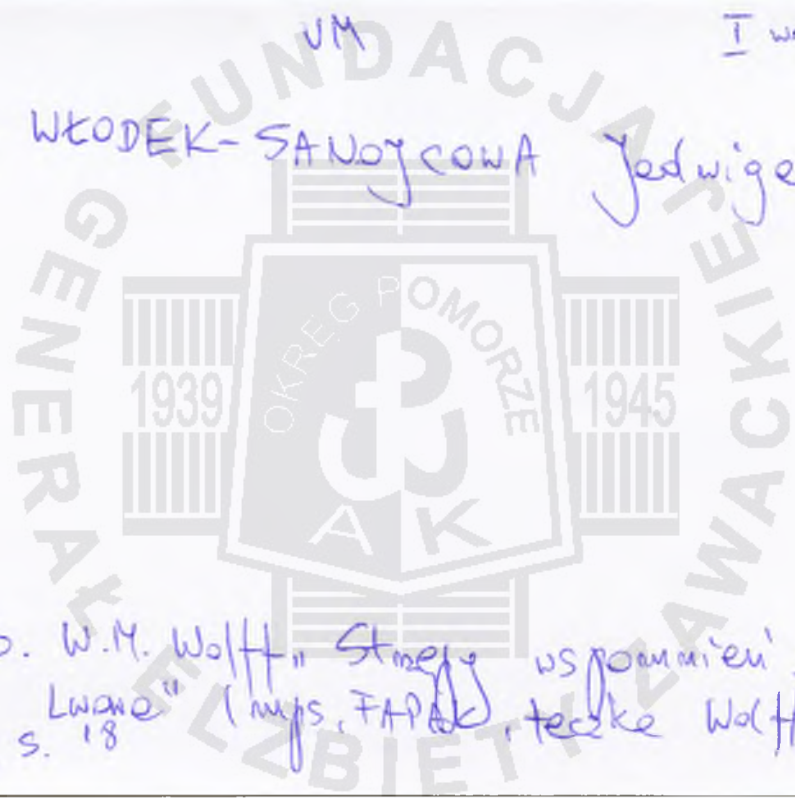 VM
I
WŁODEK-SANOJCOWA Jadwiga
FUNDACJA GENERAŁ ELŻBIETY ZAWACKIEJ
OKRĘG POMORZE
1939
1945
AK
W.M. Wolff „ Strzępy wspomnień
Lwowa" (mps, FAPAK, teczka Wolff
s. 18